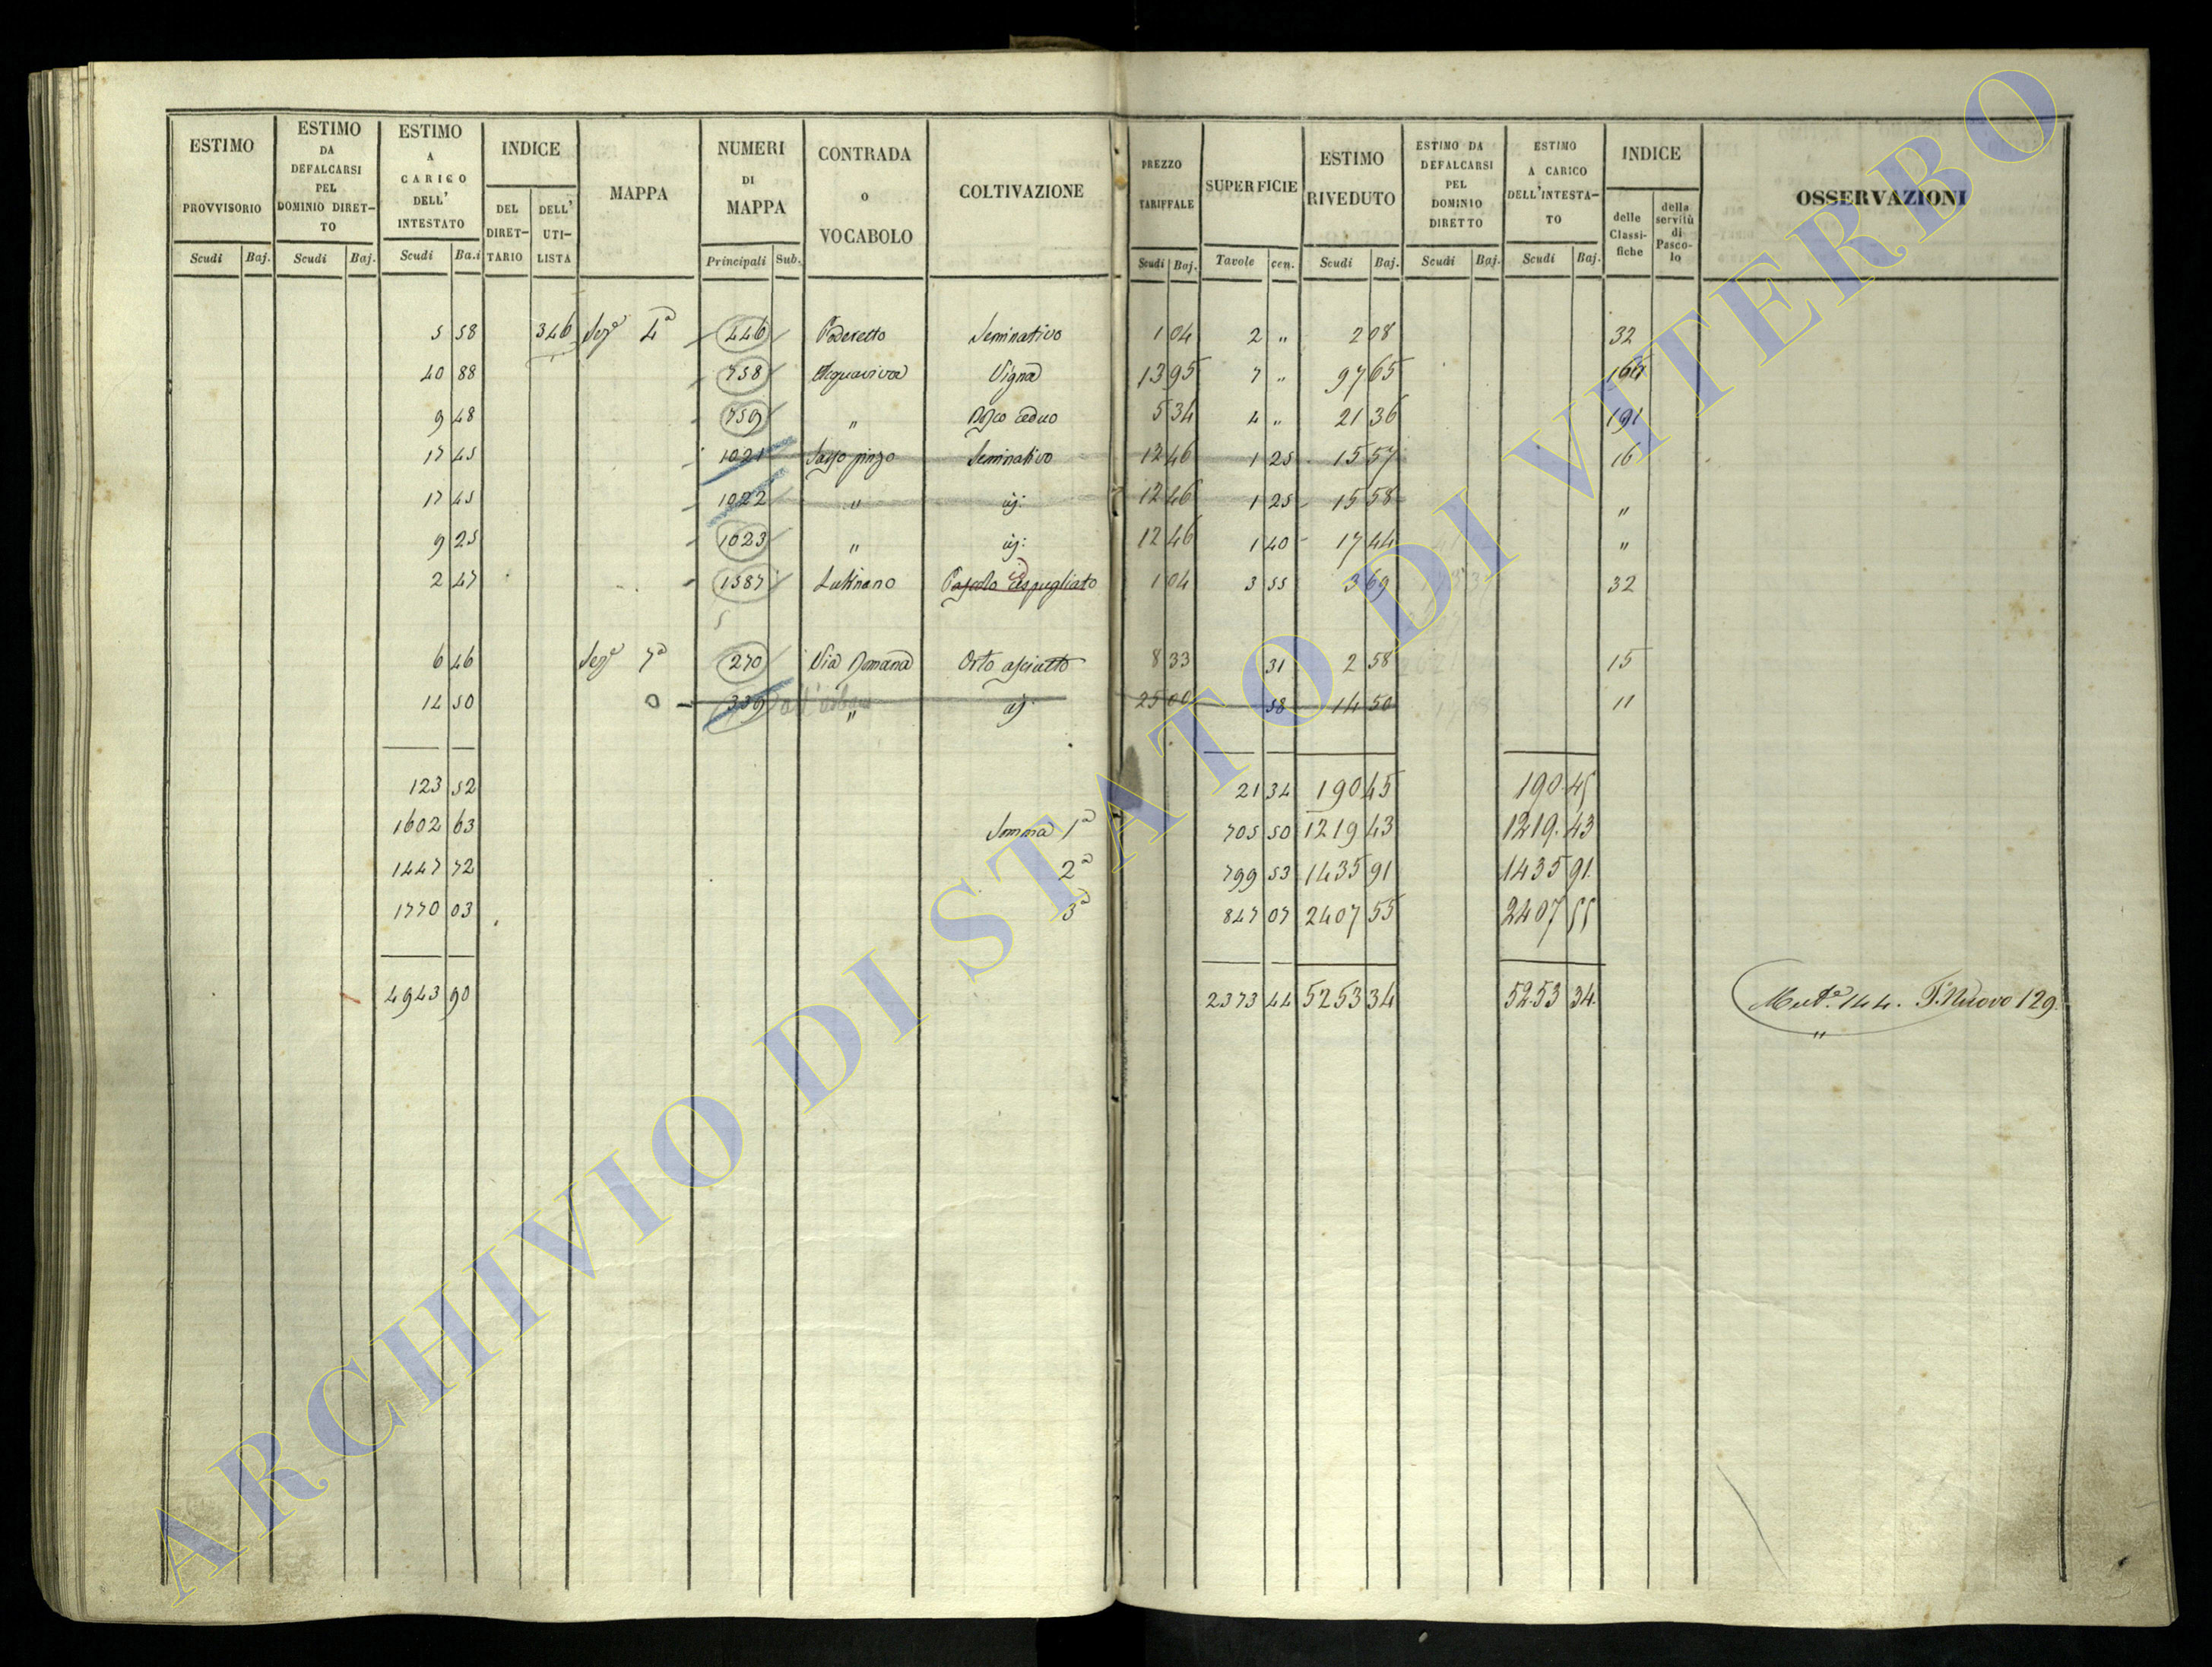 ESTIMO PROVVISORIO
ESTIMO DA DEFALCARSI PEL DOMINIO DIRET-TO
ESTIMO A CARICO DELL' INTESTATO
INDICE
DEL DIRET-TARIO
DELL' UTI-LISTA
MAPPA
NUMERI DI MAPPA
CONTRADA o VOCABOLO
COLTIVAZIONE
PREZZO TARIFFALE
SUPERFICIE
ESTIMO RIVEDUTO
ESTIMO DA DEFALCARSI PEL DOMINIO DIRETTO
ESTIMO A CARICO DELL'INTESTA-TO
INDICE
delle Classi-fiche
della servitù di Pasco-lo
OSSERVAZIONI
Scudi Baj. Scudi Baj. Scudi Ba.i Principali Sub. Scudi Baj. Tavole cen. Scudi Baj. Scudi Baj. Scudi Baj.
5 58 346 Sez.e 4a 446 Poderetto Seminativo 1 04 2 " 2 08 32
40 88 758 Acquaviva Vigna 13 95 7 " 97 65
9 48 759 " Bosco ceduo 5 34 4 " 21 36 191
17 45 1021 Sasso pinzo Seminativo 12 46 1 25 15 57 16
17 45 1022 " id: 12 46 1 25 15 58 "
9 25 1023 " id: 12 46 1 40 17 44 "
2 47 1587 Lutinano Pascolo Cespugliato 1 04 3 55 3 69 32
6 46 Sez.e 7a 270 Via Romana Orto asciutto 8 33 31 2 58 15
14 50 0 339 " id: 25 00 58 14 50 11
123 52 21 34 190 45 190 45
1602 63 Somma 1a 705 50 1219 43 1219. 43
1447 72 2a 799 53 1435 91 1435 91.
1770 03 3a 847 07 2407 55 2407 55
4943 90 2373 44 5253 34 5253 34.
Mut.e 144. F. Nuovo 129.
"
ARCHIVIO DI STATO DI VITERBO